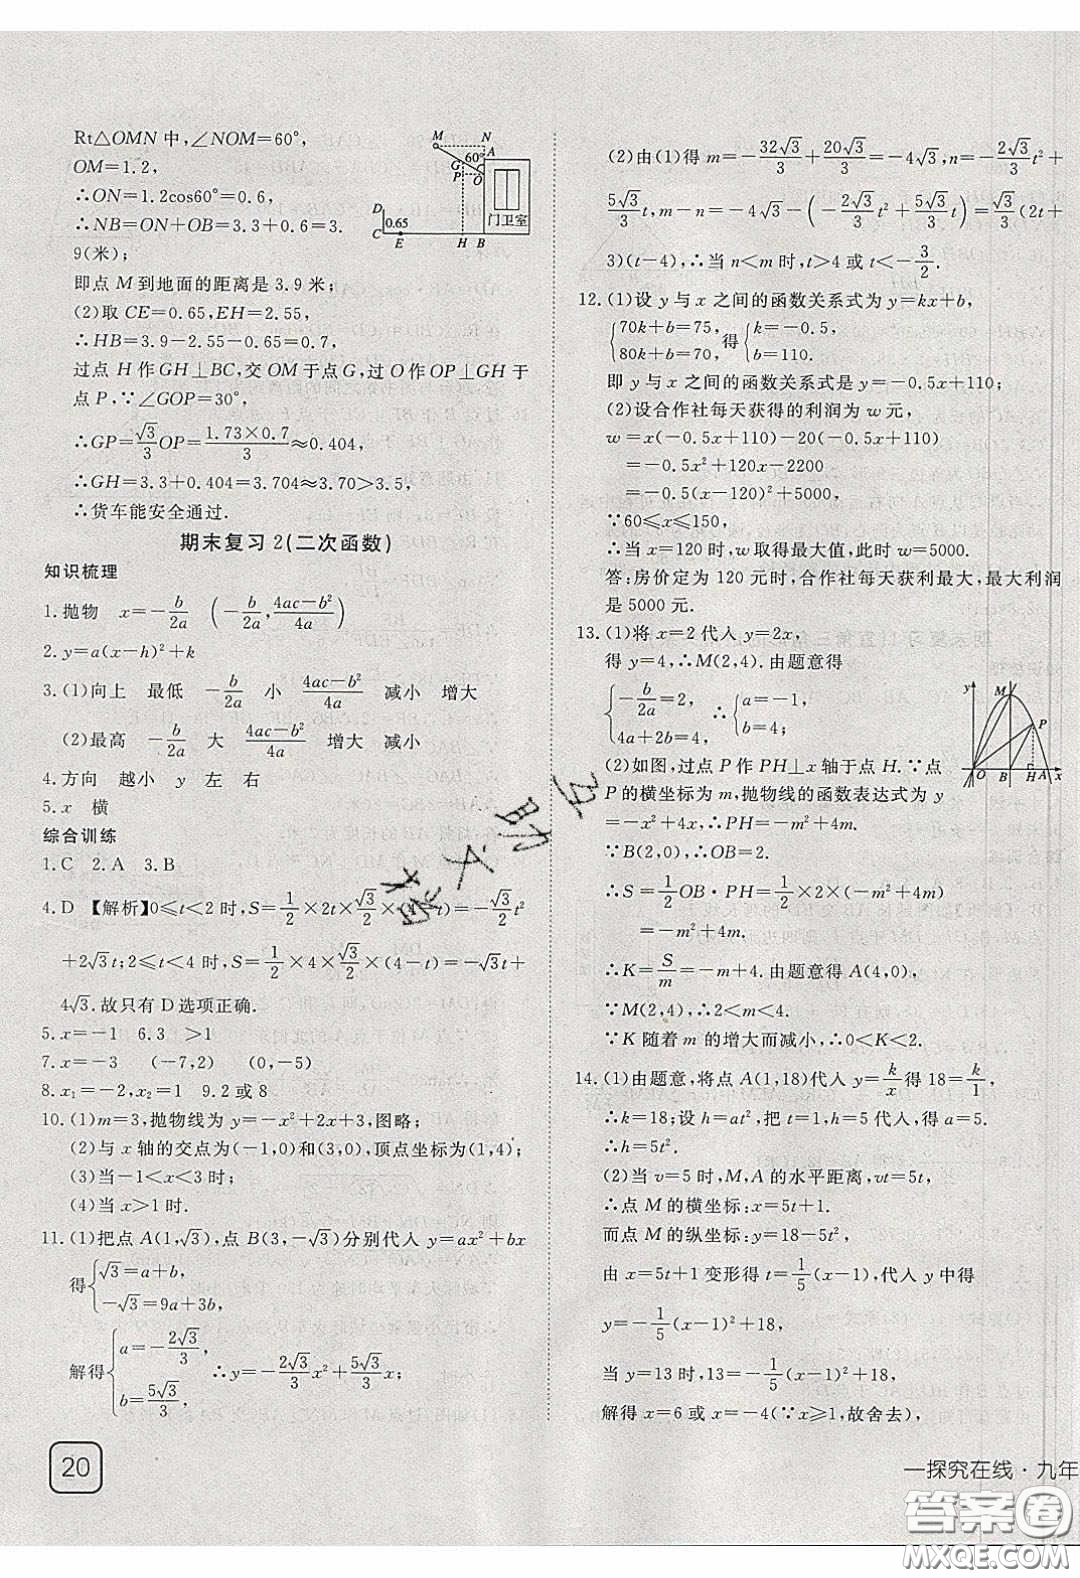 Rt△OMN 中,∠NOM=60°,
OM=1.2,
∴ON=1.2cos60°=0.6,
∴NB=ON+OB=3.3+0.6=3.
9(米);
即点 M 到地面的距离是 3.9 米;
(2)取 CE=0.65,EH=2.55,
∴HB=3.9-2.55-0.65=0.7,
过点 H 作 GH⊥BC,交 OM 于点 G,过 O 作 OP⊥GH 于
点 P,∵∠GOP=30°,
∴GP=√3/3 OP=(1.73×0.7)/3≈0.404,
∴GH=3.3+0.404=3.704≈3.70>3.5,
∴货车能安全通过.
M N
A
60°
G
P O
D
0.65
C E H B
门卫室
期末复习 2(二次函数)
知识梳理
1.抛物 x=-b/2a (-b/2a,(4ac-b²)/4a)
2.y=a(x-h)²+k
3.(1)向上 最低 -b/2a 小 (4ac-b²)/4a 减小 增大
(2)最高 -b/2a 大 (4ac-b²)/4a 增大 减小
4.方向 越小 y 左 右
5.x 横
综合训练
1.C 2.A 3.B
4.D 【解析】0≤t<2 时,S=1/2×2t×√3/2×(4-t)=-√3/2 t²
+2√3t;2≤t<4 时,S=1/2×4×√3/2×(4-t)=-√3t+
4√3.故只有 D 选项正确.
5.x=-1 6.3 >1
7.x=-3 (-7,2) (0,-5)
8.x₁=-2,x₂=1 9.2 或 8
10.(1)m=3,抛物线为 y=-x²+2x+3,图略;
(2)与 x 轴的交点为(-1,0)和(3,0),顶点坐标为(1,4);
(3)当-1<x<3 时;
(4)当 x>1 时.
11.(1)把点 A(1,√3),点 B(3,-√3)分别代入 y=ax²+bx
得{√3=a+b,
-√3=9a+3b,
解得{a=-2√3/3,
b=5√3/3,
∴y=-2√3/3 x²+5√3/3 x.
20
(2)由(1)得 m=-32√3/3+20√3/3=-4√3,n=-2√3/3 t²+
5√3/3 t,m-n=-4√3-(-2√3/3 t²+5√3/3 t)=√3/3(2t+
3)(t-4),∴当 n<m 时,t>4 或 t<-3/2.
12.(1)设 y 与 x 之间的函数关系式为 y=kx+b,
{70k+b=75,
80k+b=70,
得{k=-0.5,
b=110.
即 y 与 x 之间的函数关系式是 y=-0.5x+110;
(2)设合作社每天获得的利润为 w 元,
w=x(-0.5x+110)-20(-0.5x+110)
=-0.5x²+120x-2200
=-0.5(x-120)²+5000,
∵60≤x≤150,
∴当 x=120 时,w 取得最大值,此时 w=5000.
答:房价定为 120 元时,合作社每天获利最大,最大利润
是 5000 元.
13.(1)将 x=2 代入 y=2x,
得 y=4,∴M(2,4).由题意得
{-b/2a=2,
4a+2b=4;
∴{a=-1,
b=4;
(2)如图,过点 P 作 PH⊥x 轴于点 H.∵点
P 的横坐标为 m,抛物线的函数表达式为 y
=-x²+4x,∴PH=-m²+4m.
∵B(2,0),∴OB=2.
y M
P
O B H A x
∴S=1/2 OB·PH=1/2×2×(-m²+4m)
=-m²+4m.
∴K=S/m=-m+4.由题意得 A(4,0).
∵M(2,4),∴2<m<4.
∵K 随着 m 的增大而减小,∴0<K<2.
14.(1)由题意,将点 A(1,18)代入 y=k/x 得 18=k/1,
∴k=18;设 h=at²,把 t=1,h=5 代入,得 a=5.
∴h=5t².
(2)当 v=5 时,M,A 的水平距离,vt=5t,
∴点 M 的横坐标:x=5t+1.
而点 M 的纵坐标:y=18-5t²,
由 x=5t+1 变形得 t=1/5(x-1),代入 y 中得
y=-1/5(x-1)²+18,
当 y=13 时,13=-1/5(x-1)²+18,
解得 x=6 或 x=-4(∵x≥1,故舍去),
一探究在线·九年
答案圈
MXQE.COM